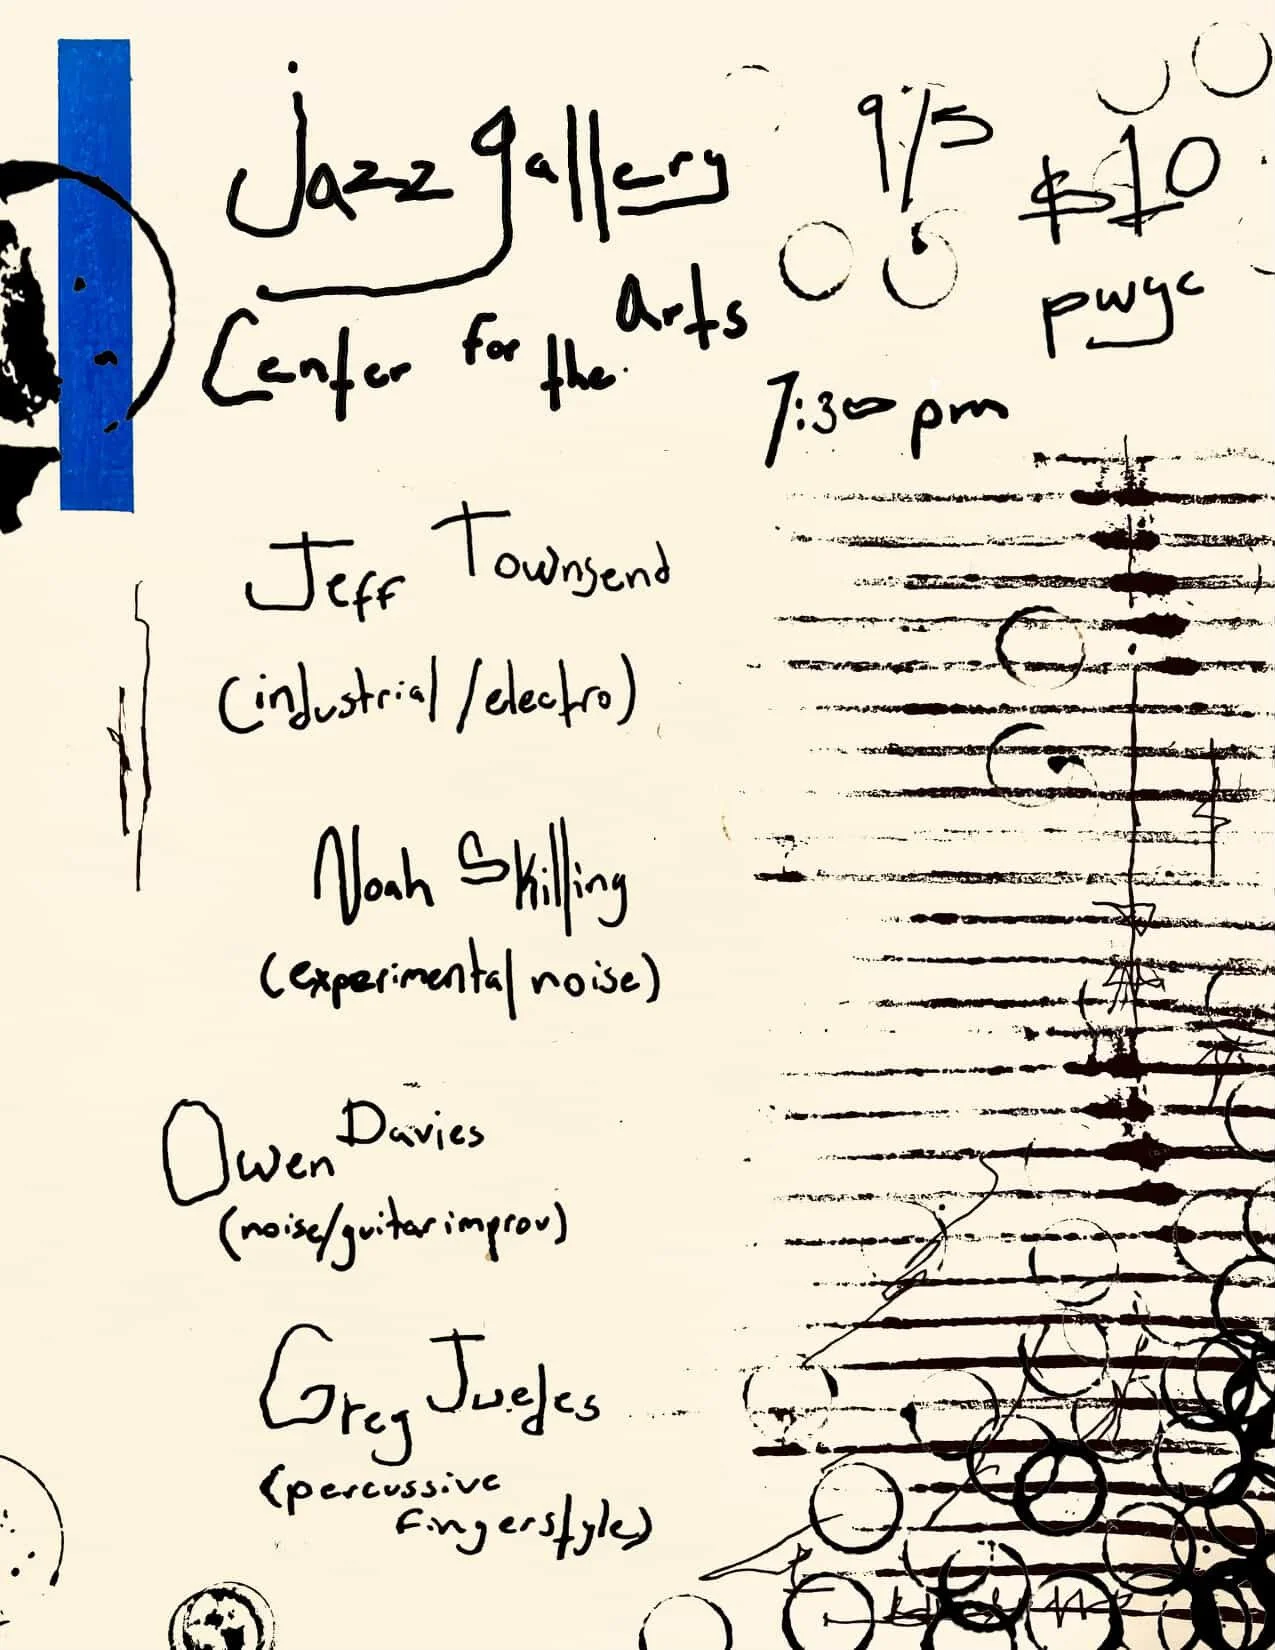 Jazz gallery
Center for the Arts
9/5
$10
pwyc
7:30 pm
Jeff Townsend
(industrial/electro)
Noah Skilling
(experimental noise)
Owen Davies
(noise/guitar improv)
Greg Juedes
(percussive
fingerstyle)